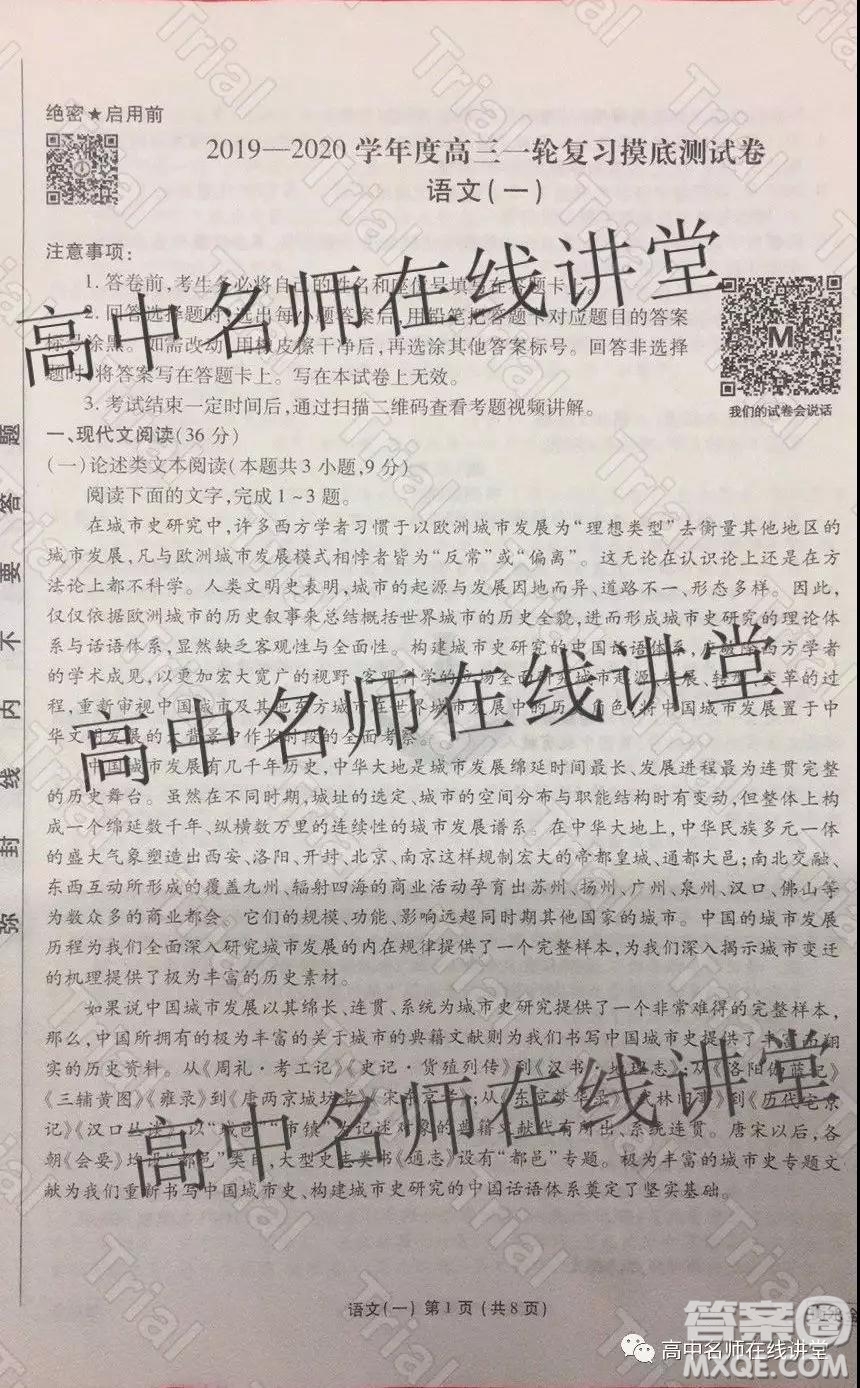 绝密★启用前
2019—2020学年度高三一轮复习摸底测试卷
语文(一)
注意事项:
1.答卷前,考生务必将自己的姓名和座位号填写在答题卡上。
2.回答选择题时,选出每小题答案后,用铅笔把答题卡对应题目的答案
标号涂黑。如需改动,用橡皮擦干净后,再选涂其他答案标号。回答非选择
题时,将答案写在答题卡上。写在本试卷上无效。
3.考试结束一定时间后,通过扫描二维码查看考题视频讲解。
M
我们的试卷会说话
一、现代文阅读(36分)
(一)论述类文本阅读(本题共3小题,9分)
阅读下面的文字,完成1~3题。
在城市史研究中,许多西方学者习惯于以欧洲城市发展为“理想类型”去衡量其他地区的
城市发展,凡与欧洲城市发展模式相悖者皆为“反常”或“偏离”。这无论在认识论上还是在方
法论上都不科学。人类文明史表明,城市的起源与发展因地而异、道路不一、形态多样。因此,
仅仅依据欧洲城市的历史叙事来总结概括世界城市的历史全貌,进而形成城市史研究的理论体
系与话语体系,显然缺乏客观性与全面性。构建城市史研究的中国话语体系,应破除西方学者
的学术成见,以更加宏大宽广的视野、客观科学的立场全面研究城市起源、发展、转型、变革的过
程,重新审视中国城市及其他东方城市在世界城市发展中的历史角色,将中国城市发展置于中
华文明发展的大背景中作长时段的全面考察。
中国城市发展有几千年历史,中华大地是城市发展绵延时间最长、发展进程最为连贯完整
的历史舞台。虽然在不同时期,城址的选定、城市的空间分布与职能结构时有变动,但整体上构
成一个绵延数千年、纵横数万里的连续性的城市发展谱系。在中华大地上,中华民族多元一体
的盛大气象塑造出西安、洛阳、开封、北京、南京这样规制宏大的帝都皇城、通都大邑;南北交融、
东西互动所形成的覆盖九州、辐射四海的商业活动孕育出苏州、扬州、广州、泉州、汉口、佛山等
为数众多的商业都会。它们的规模、功能、影响远超同时期其他国家的城市。中国的城市发展
历程为我们全面深入研究城市发展的内在规律提供了一个完整样本,为我们深入揭示城市变迁
的机理提供了极为丰富的历史素材。
如果说中国城市发展以其绵长、连贯、系统为城市史研究提供了一个非常难得的完整样本,
那么,中国所拥有的极为丰富的关于城市的典籍文献则为我们书写中国城市史提供了丰富而翔
实的历史资料。从《周礼·考工记》《史记·货殖列传》到《汉书·地理志》;从《洛阳伽蓝记》
《三辅黄图》《雍录》到《唐两京城坊考》《宋东京考》;从《东京梦华录》《武林旧事》到《历代宅京
记》《汉口丛谈》,以“城邑”“市镇”为记述对象的典籍文献代有所出、系统连贯。唐宋以后,各
朝《会要》均设“都邑”类目,大型史志类书《通志》设有“都邑”专题。极为丰富的城市史专题文
献为我们重新书写中国城市史、构建城市史研究的中国话语体系奠定了坚实基础。
语文(一) 第1页(共8页)
弥 封 线 内 不 要 答 题
高中名师在线讲堂
高中名师在线讲堂
高中名师在线讲堂
Trial
答案圈
高中名师在线讲堂
MXQE.COM